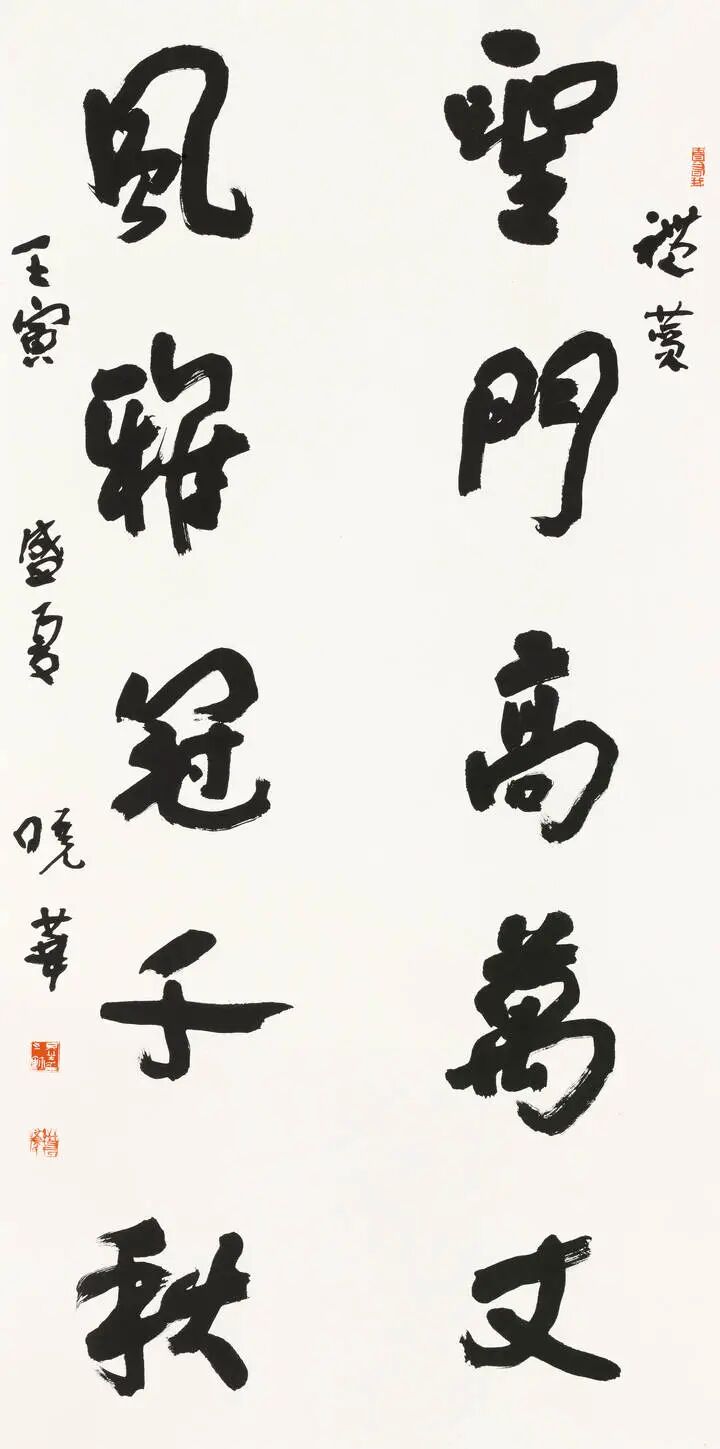 禮贊
聖門高萬丈
風雅冠千秋
壬寅盛夏曉華